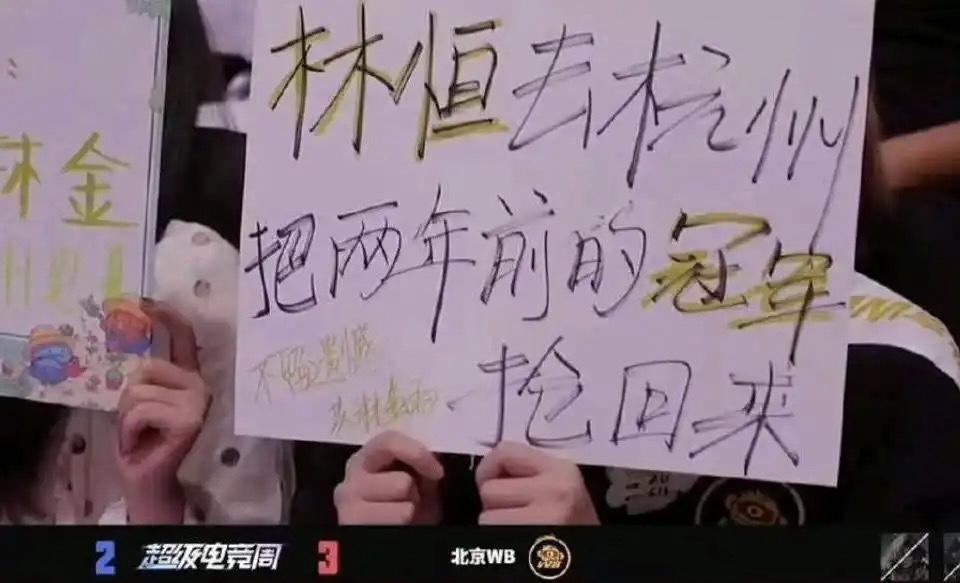 林恒去杭州
把两年前的冠军
抢回来
不留遗憾
林金
2 超级电竞周 3 北京WB
WB